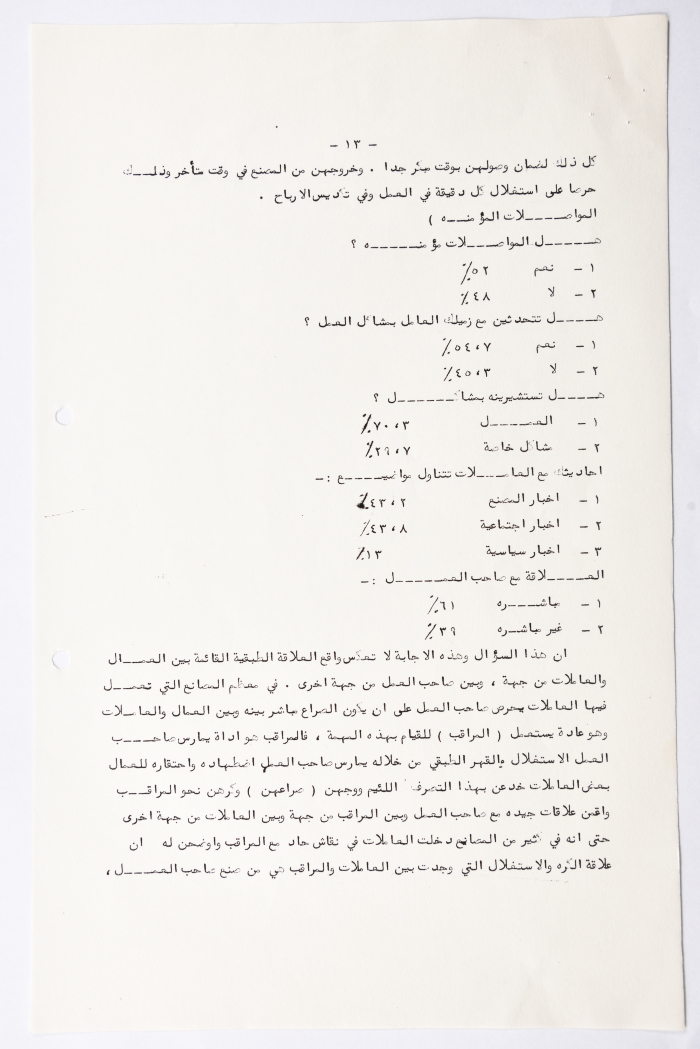 - ١٣ -
كل ذلك لضمان وصولهن بوقت مبكر جدا . وخروجهن من المصنع في وقت متأخر وذلـــك
حرصا على استغلال كل دقيقة في العمل وفي تكديس الارباح .
المواصــــلات المؤمنــــه )
هـــــل المواصـــلات مؤمنـــــه ؟
١ - نعم ٥٢٪
٢ - لا ٤٨٪
هــــل تتحدثين مع زميلك العامل بمشاكل العمل ؟
١ - نعم ٥٤،٧٪
٢ - لا ٤٥،٣٪
هــــل تستشيرينه بمشاكــــــل ؟
١ - العمـــــل ٧٠،٣٪
٢ - مشاكل خاصة ٢٩،٧٪
احاديثك مع العامـــلات تتناول مواضيـــــع :-
١ - اخبار المصنع ٤٣،٢٪
٢ - اخبار اجتماعية ٤٣،٨٪
٣ - اخبار سياسية ١٣٪
العــــلاقة مع صاحب العمـــــل :-
١ - مباشـــره ٦١٪
٢ - غير مباشره ٣٩٪
ان هذا السؤال وهذه الاجابة لا تعكس واقع العلاقة الطبقية القائمة بين العمــال
والعاملات من جهة ، وبين صاحب العمل من جهة اخرى . في معظم المصانع التي تعمــل
فيها العاملات يحرص صاحب العمل على ان يكون الصراع مباشر بينه وبين العمال والعامــلات
وهو عادة يستعمل ( المراقب ) للقيام بهذه المهمة ، فالمراقب هو اداة يمارس صاحـــب
العمل الاستغلال والقهر الطبقي من خلاله يمارس صاحب العمل اضطهاده واحتقاره للعمال
بعض العاملات خدعن بهذا التصرف اللئيم ووجهن ( صراعهن ) وكرهن نحو المراقــب
واقمن علاقات جيده مع صاحب العمل وبين المراقب من جهة وبين العاملات من جهة اخرى
حتى انه في كثير من المصانع دخلت العاملات في نقاش حاد مع المراقب واوضحن له ان
علاقة الكره والاستغلال التي وجدت بين العاملات والمراقب هي من صنع صاحب العمــــل ،